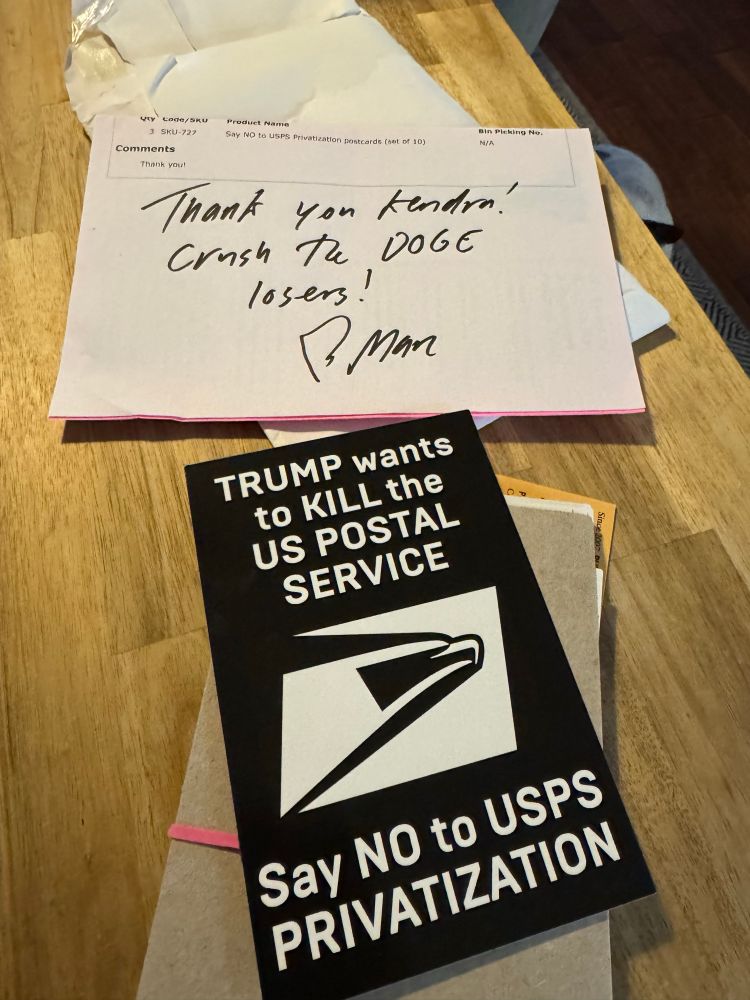 Qty Code/SKU Product Name Bin Picking No.
3 SKU-727 Say NO to USPS Privatization postcards (set of 10) N/A
Comments
Thank you!
Thank you Kendra!
Crush the DOGE
losers!
TRUMP wants
to KILL the
US POSTAL
SERVICE
Say NO to USPS
PRIVATIZATION